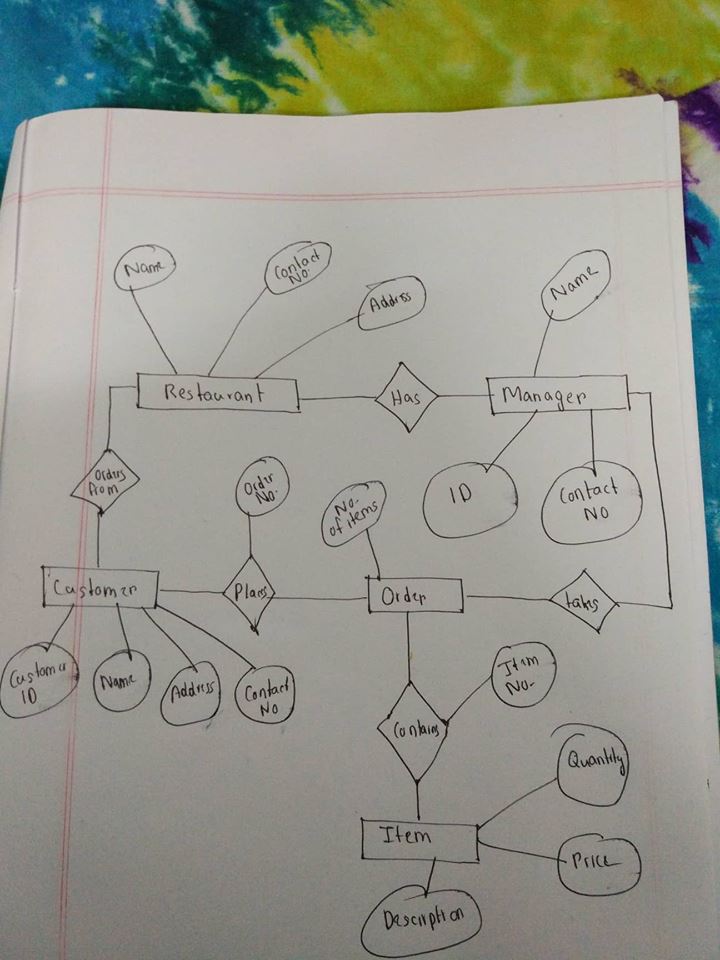 Name
Contact
No.
Address
Name
Restaurant
Has
Manager
Orders
from
Order
No.
No.
of items
ID
Contact
No
Customer
Places
Order
takes
Customer
ID
Name
Address
Contact
No
Item
No.
Contains
Quantity
Item
Price
Description